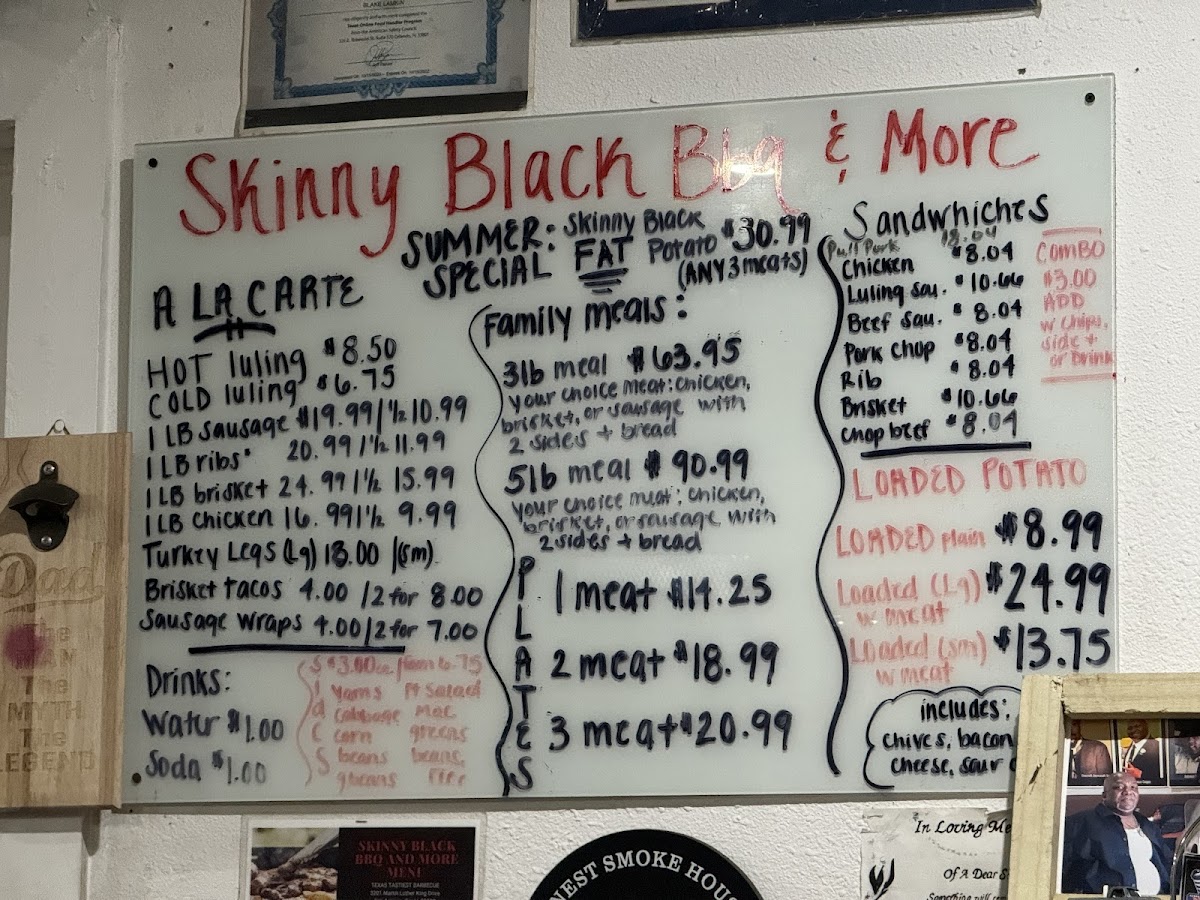 BLAKE LAMBIN
Skinny Black Bbq & More
SUMMER: Skinny Black
SPECIAL FAT Potato $30.99
(ANY 3 meats)
A LA CARTE
HOT luling $8.50
COLD luling $6.75
1 LB sausage $19.99/1/2 10.99
1 LB ribs 20.99/1/2 11.99
1 LB brisket 24.99/1/2 15.99
1 LB chicken 16.99/1/2 9.99
Turkey Legs (Lg) 18.00 /(sm)
Brisket tacos 4.00 /2 for 8.00
Sausage wraps 4.00/2 for 7.00
Drinks:
Water $1.00
Soda $1.00
S $3.00
i yams Pt Salad
d cabbage Mac
e corn greens
S beans beans,
gbeans rice
Family meals:
3lb meal $63.95
your choice meat: chicken,
brisket, or sausage with
2 sides + bread
5lb meal $90.99
your choice meat: chicken,
brisket, or sausage with
2 sides + bread
PLATES
1 meat $14.25
2 meat $18.99
3 meat $20.99
Sandwhiches
Pull Pork $8.04
Chicken $8.04
Luling Sau. $10.66
Beef Sau. $8.04
Pork Chop $8.04
Rib $8.04
Brisket $10.66
Chop beef $8.04
COMBO
$3.00
ADD
w chips,
side +
or Drink
LOADED POTATO
LOADED plain $8.99
Loaded (Lg) $24.99
w meat
Loaded (sm) $13.75
w meat
includes:
chives, bacon
cheese, sour
Dad
The
MAN
The
MYTH
The
LEGEND
SKINNY BLACK
BBQ AND MORE
MENU
TEXAS TASTIEST BARBECUE
NEST SMOKE HOUS
In Loving Me
Of A Dear S
Something will